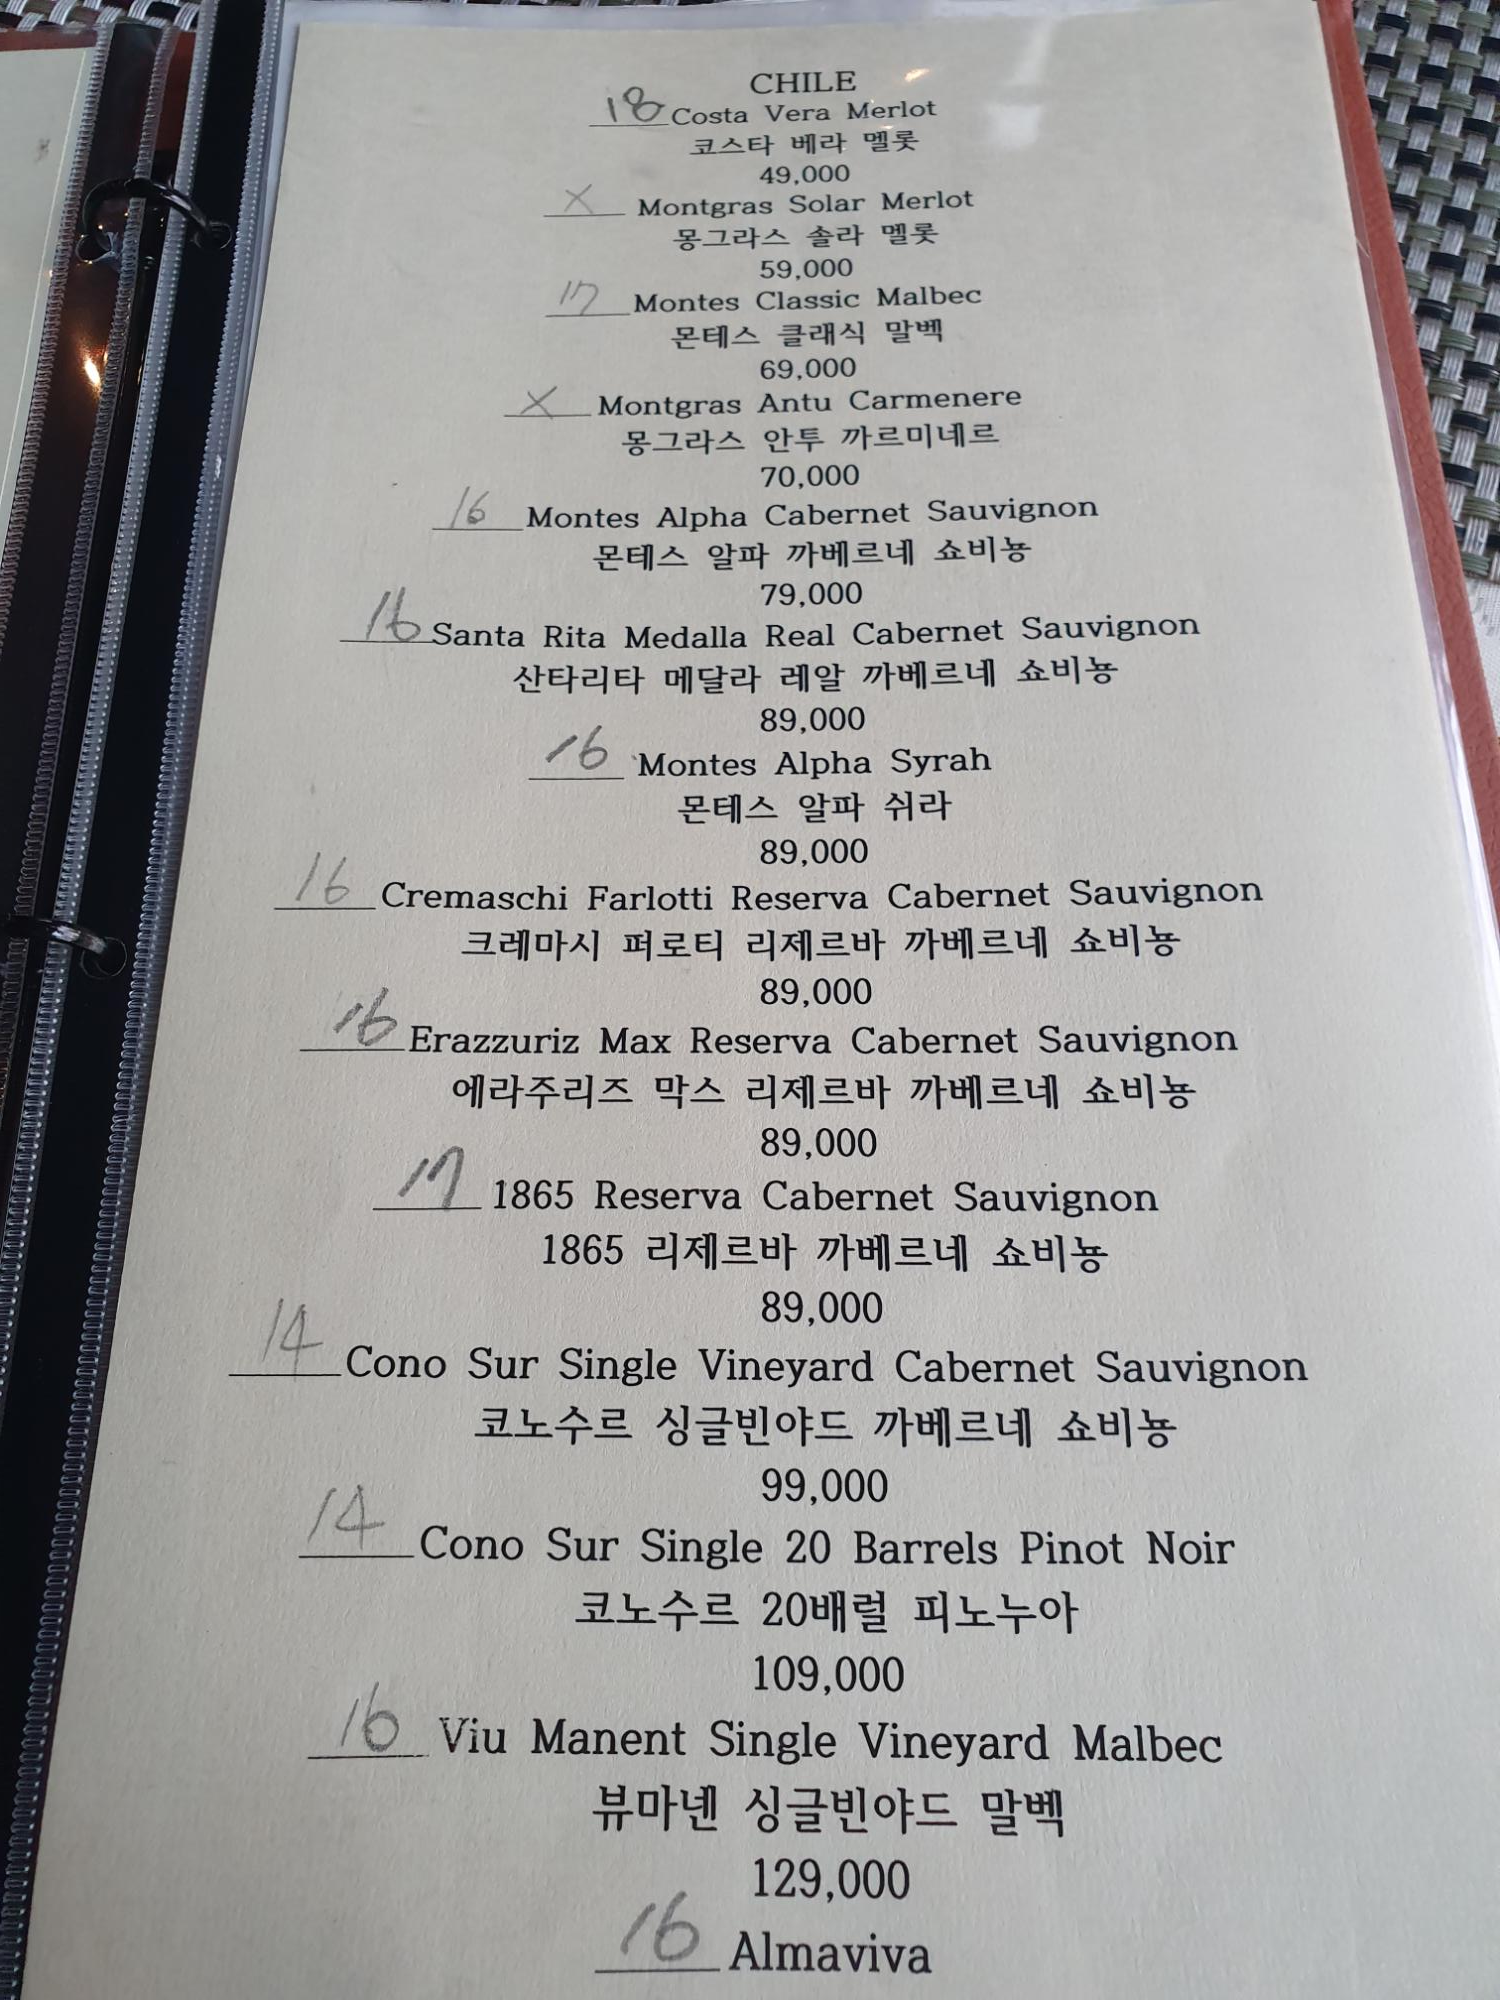 CHILE
18 Costa Vera Merlot
코스타 베라 멜롯
49,000
X Montgras Solar Merlot
몽그라스 솔라 멜롯
59,000
17 Montes Classic Malbec
몬테스 클래식 말벡
69,000
X Montgras Antu Carmenere
몽그라스 안투 까르미네르
70,000
16 Montes Alpha Cabernet Sauvignon
몬테스 알파 까베르네 쇼비뇽
79,000
16 Santa Rita Medalla Real Cabernet Sauvignon
산타리타 메달라 레알 까베르네 쇼비뇽
89,000
16 Montes Alpha Syrah
몬테스 알파 쉬라
89,000
16 Cremaschi Farlotti Reserva Cabernet Sauvignon
크레마시 퍼로티 리제르바 까베르네 쇼비뇽
89,000
16 Erazzuriz Max Reserva Cabernet Sauvignon
에라주리즈 막스 리제르바 까베르네 쇼비뇽
89,000
17 1865 Reserva Cabernet Sauvignon
1865 리제르바 까베르네 쇼비뇽
89,000
14 Cono Sur Single Vineyard Cabernet Sauvignon
코노수르 싱글빈야드 까베르네 쇼비뇽
99,000
14 Cono Sur Single 20 Barrels Pinot Noir
코노수르 20배럴 피노누아
109,000
16 Viu Manent Single Vineyard Malbec
뷰마넨 싱글빈야드 말벡
129,000
16 Almaviva